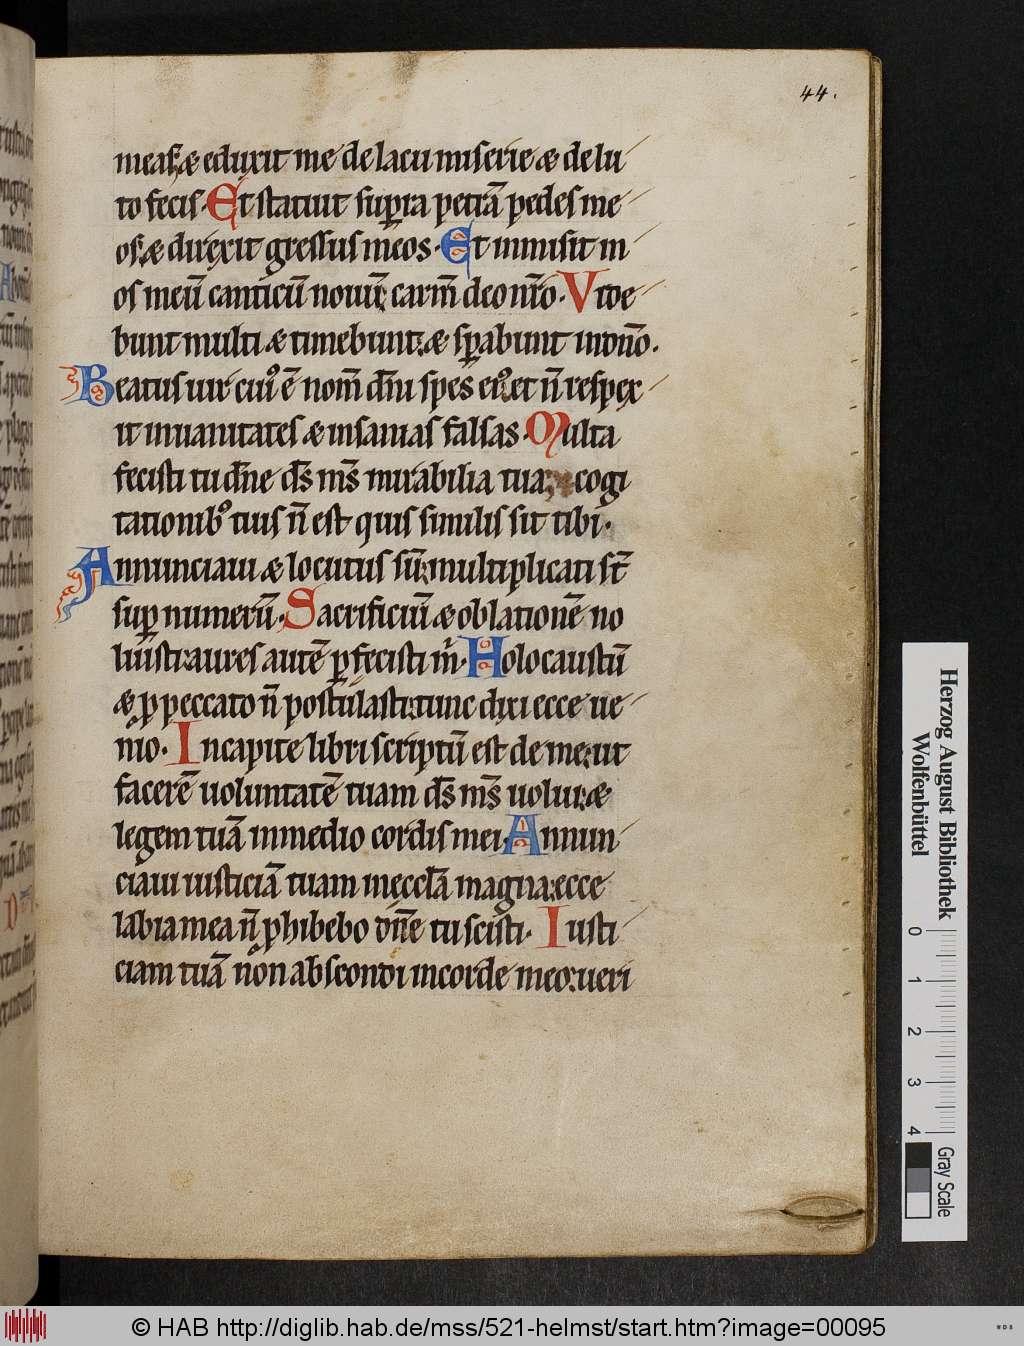 44.
meas: & eduxit me de lacu miserie & de lu
to fecis. Et statuit supra petrā pedes me
os: & direxit gressus meos. Et inmisit in
os meū canticū nouū: carm̄ deo nr̄o. Vide
bunt multi & timebunt: & sꝑabunt in dn̄o.
Beatus uir cuiꝰ ē nom̄ dn̄i spes eiꝰ: et n̄ respex
it in uanitates & insanias falsas. Multa
fecisti tu dn̄e ds̄ ms̄ mirabilia tua: & cogi
tationibꝰ tuis n̄ est quis similis sit tibi.
Annunciaui & locutus sū: multiplicati st̄
suꝑ numerū. Sacrificiū & oblationē no
luisti: aures autē ꝑfecisti m̄. Holocaustū
& ꝓ peccato n̄ postulasti: tunc dixi ecce ue
nio. In capite libri scriptū est de me: ut
facerē uoluntatē tuam ds̄ ms̄ uolui: &
legem tuā in medio cordis mei. Annun
ciaui iusticiā tuam in eccl̄a magna: ecce
labia mea n̄ ꝓhibebo dn̄e tu scisti. Iusti
ciam tuā non abscondi in corde meo: ueri
Herzog August Bibliothek
Wolfenbüttel
0 1 2 3 4
Gray Scale
© HAB http://diglib.hab.de/mss/521-helmst/start.htm?image=00095